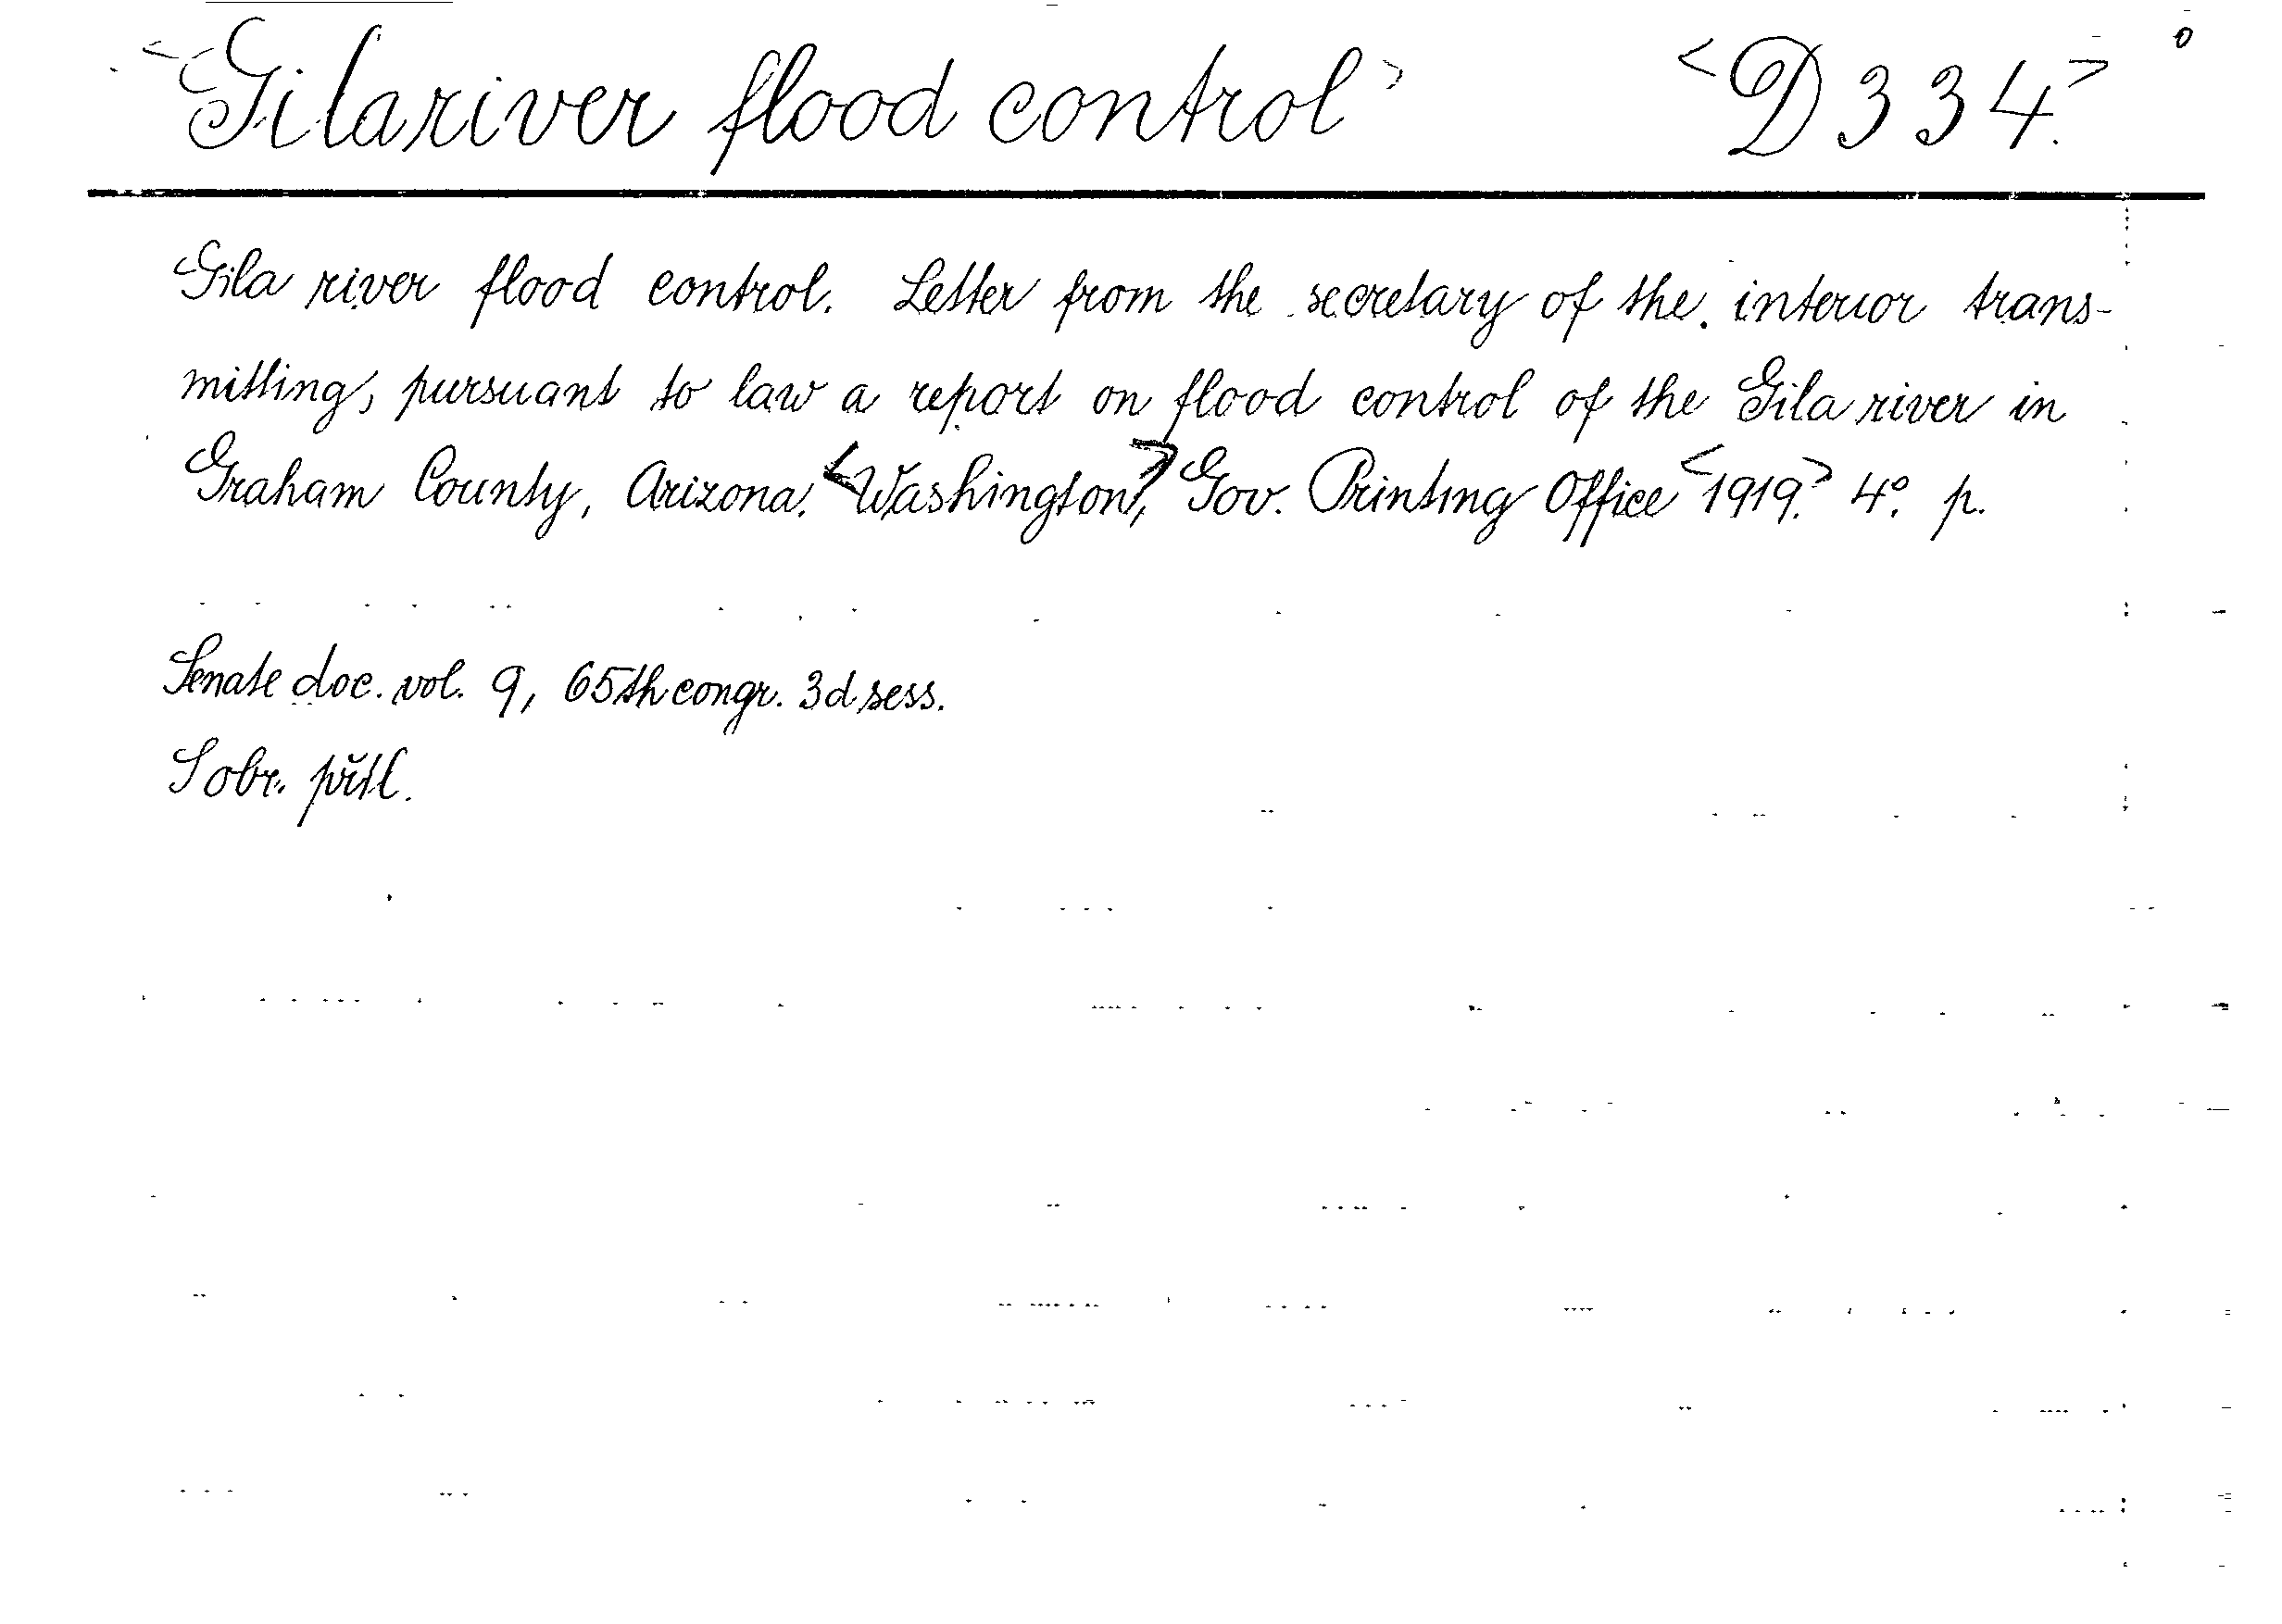 <Gila river flood control> <D 334.>
Gila river flood control. Letter from the secretary of the interior trans-
mitting, pursuant to law a report on flood control of the Gila river in
Graham County, Arizona. <Washington>, Gov. Printing Office <1919.> 4°. p.
Senate doc. vol. 9, 65th congr. 3d sess.
S obr. příl.